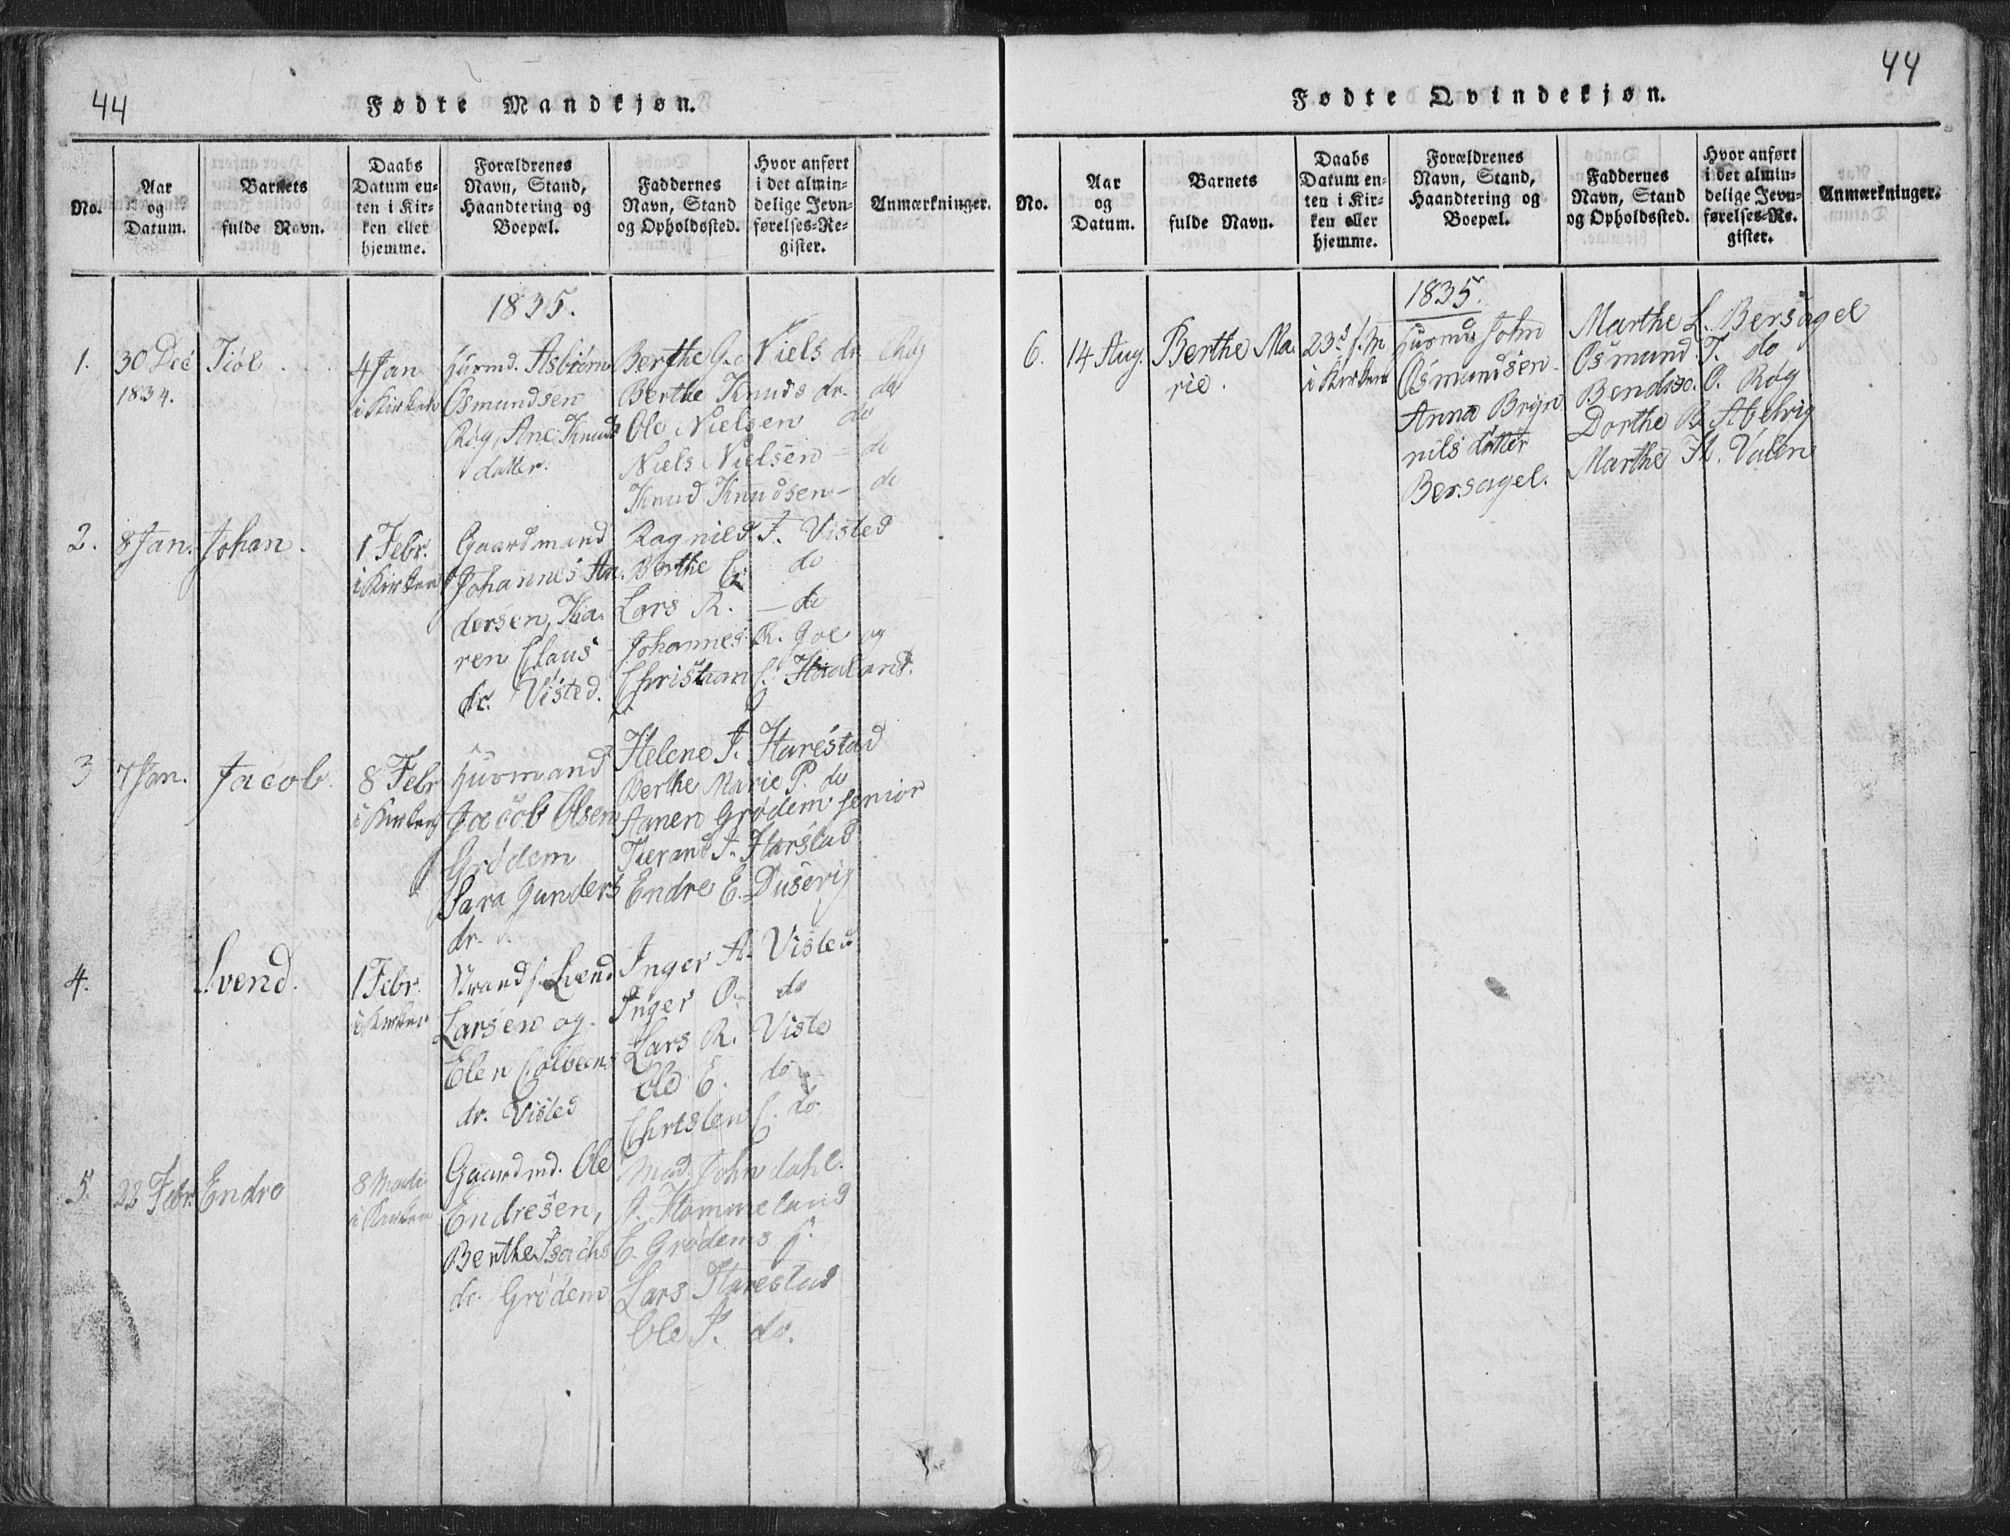 44
Fødte Mandkjøn.
No.
Aar
og
Datum.
Barnets
fulde Navn.
Daabs
Datum en-
ten i Kir-
ken eller
hjemme.
Forældrenes
Navn, Stand,
Haandtering og
Boepæl.
Faddernes
Navn, Stand
og Opholdssted.
Hvor anført
i det almin-
delige Jevn-
førelses-Re-
gister.
Anmærkninger.
1835.
1.
30 Dec
1834.
Tiøl
4 Jan
i Kirken
Huusmd. Asbiørn
Osmundsen
Røg, Ane Knuds
datter.
Berthe G. Niels dr. Røg
Berthe Knuds dr. do
Ole Nielsen do
Niels Nielsen - do
Knud Knudsen - do
2.
8 Jan.
Johan.
1 Febr.
i Kirken
Gaardmand
Johannes An
dersen, Ka
ren Claus
dr. Visted.
Ragnild J. Visted
Berthe C. do
Lars R. - do
Johannes R. Goe og
Christian C. Haaland.
3
7 Jan.
Jacob.
8 Febr
i Kirken
Huusmand
Jacob Olsen
Grødem
Sara Gunders
dr.
Helene J. Harestad
Berthe Marie P. do
Aanen Grødem senior
Tierand J. Harstad
Endre E. Dusevig
4.
Svend.
1 Febr.
i Kirken
Svend
Larsen og
Elen
dr. Visted
Inger A. Visted
Inger O. do
Lars R. Viste
Ole E. do
Christen C. do
5.
22 Febr.
Endre
8
i Kirken
Gaardmd. Ole
Endresen,
Berthe Isachs
dr. Grødem
Mad. John dahl.
J. Hommeland
E. Grødems
Lars Harestad
Ole J. do.
44
Fødte Qvindekjøn.
No.
Aar
og
Datum.
Barnets
fulde Navn.
Daabs
Datum en-
ten i Kir-
ken eller
hjemme.
Forældrenes
Navn, Stand,
Haandtering og
Boepæl.
Faddernes
Navn, Stand
og Opholdssted.
Hvor anført
i det almin-
delige Jevn-
førelses-Re-
gister.
Anmærkninger.
1835.
6.
14 Aug.
Berthe Ma
rie.
23d
i Kirken
Huusmd John
Osmundsen
Anna Bryn
nils datter
Bersagel.
Marthe L. Bersagel
Osmund T. do
O. Røg
Dorthe B.
Marthe H. Valen